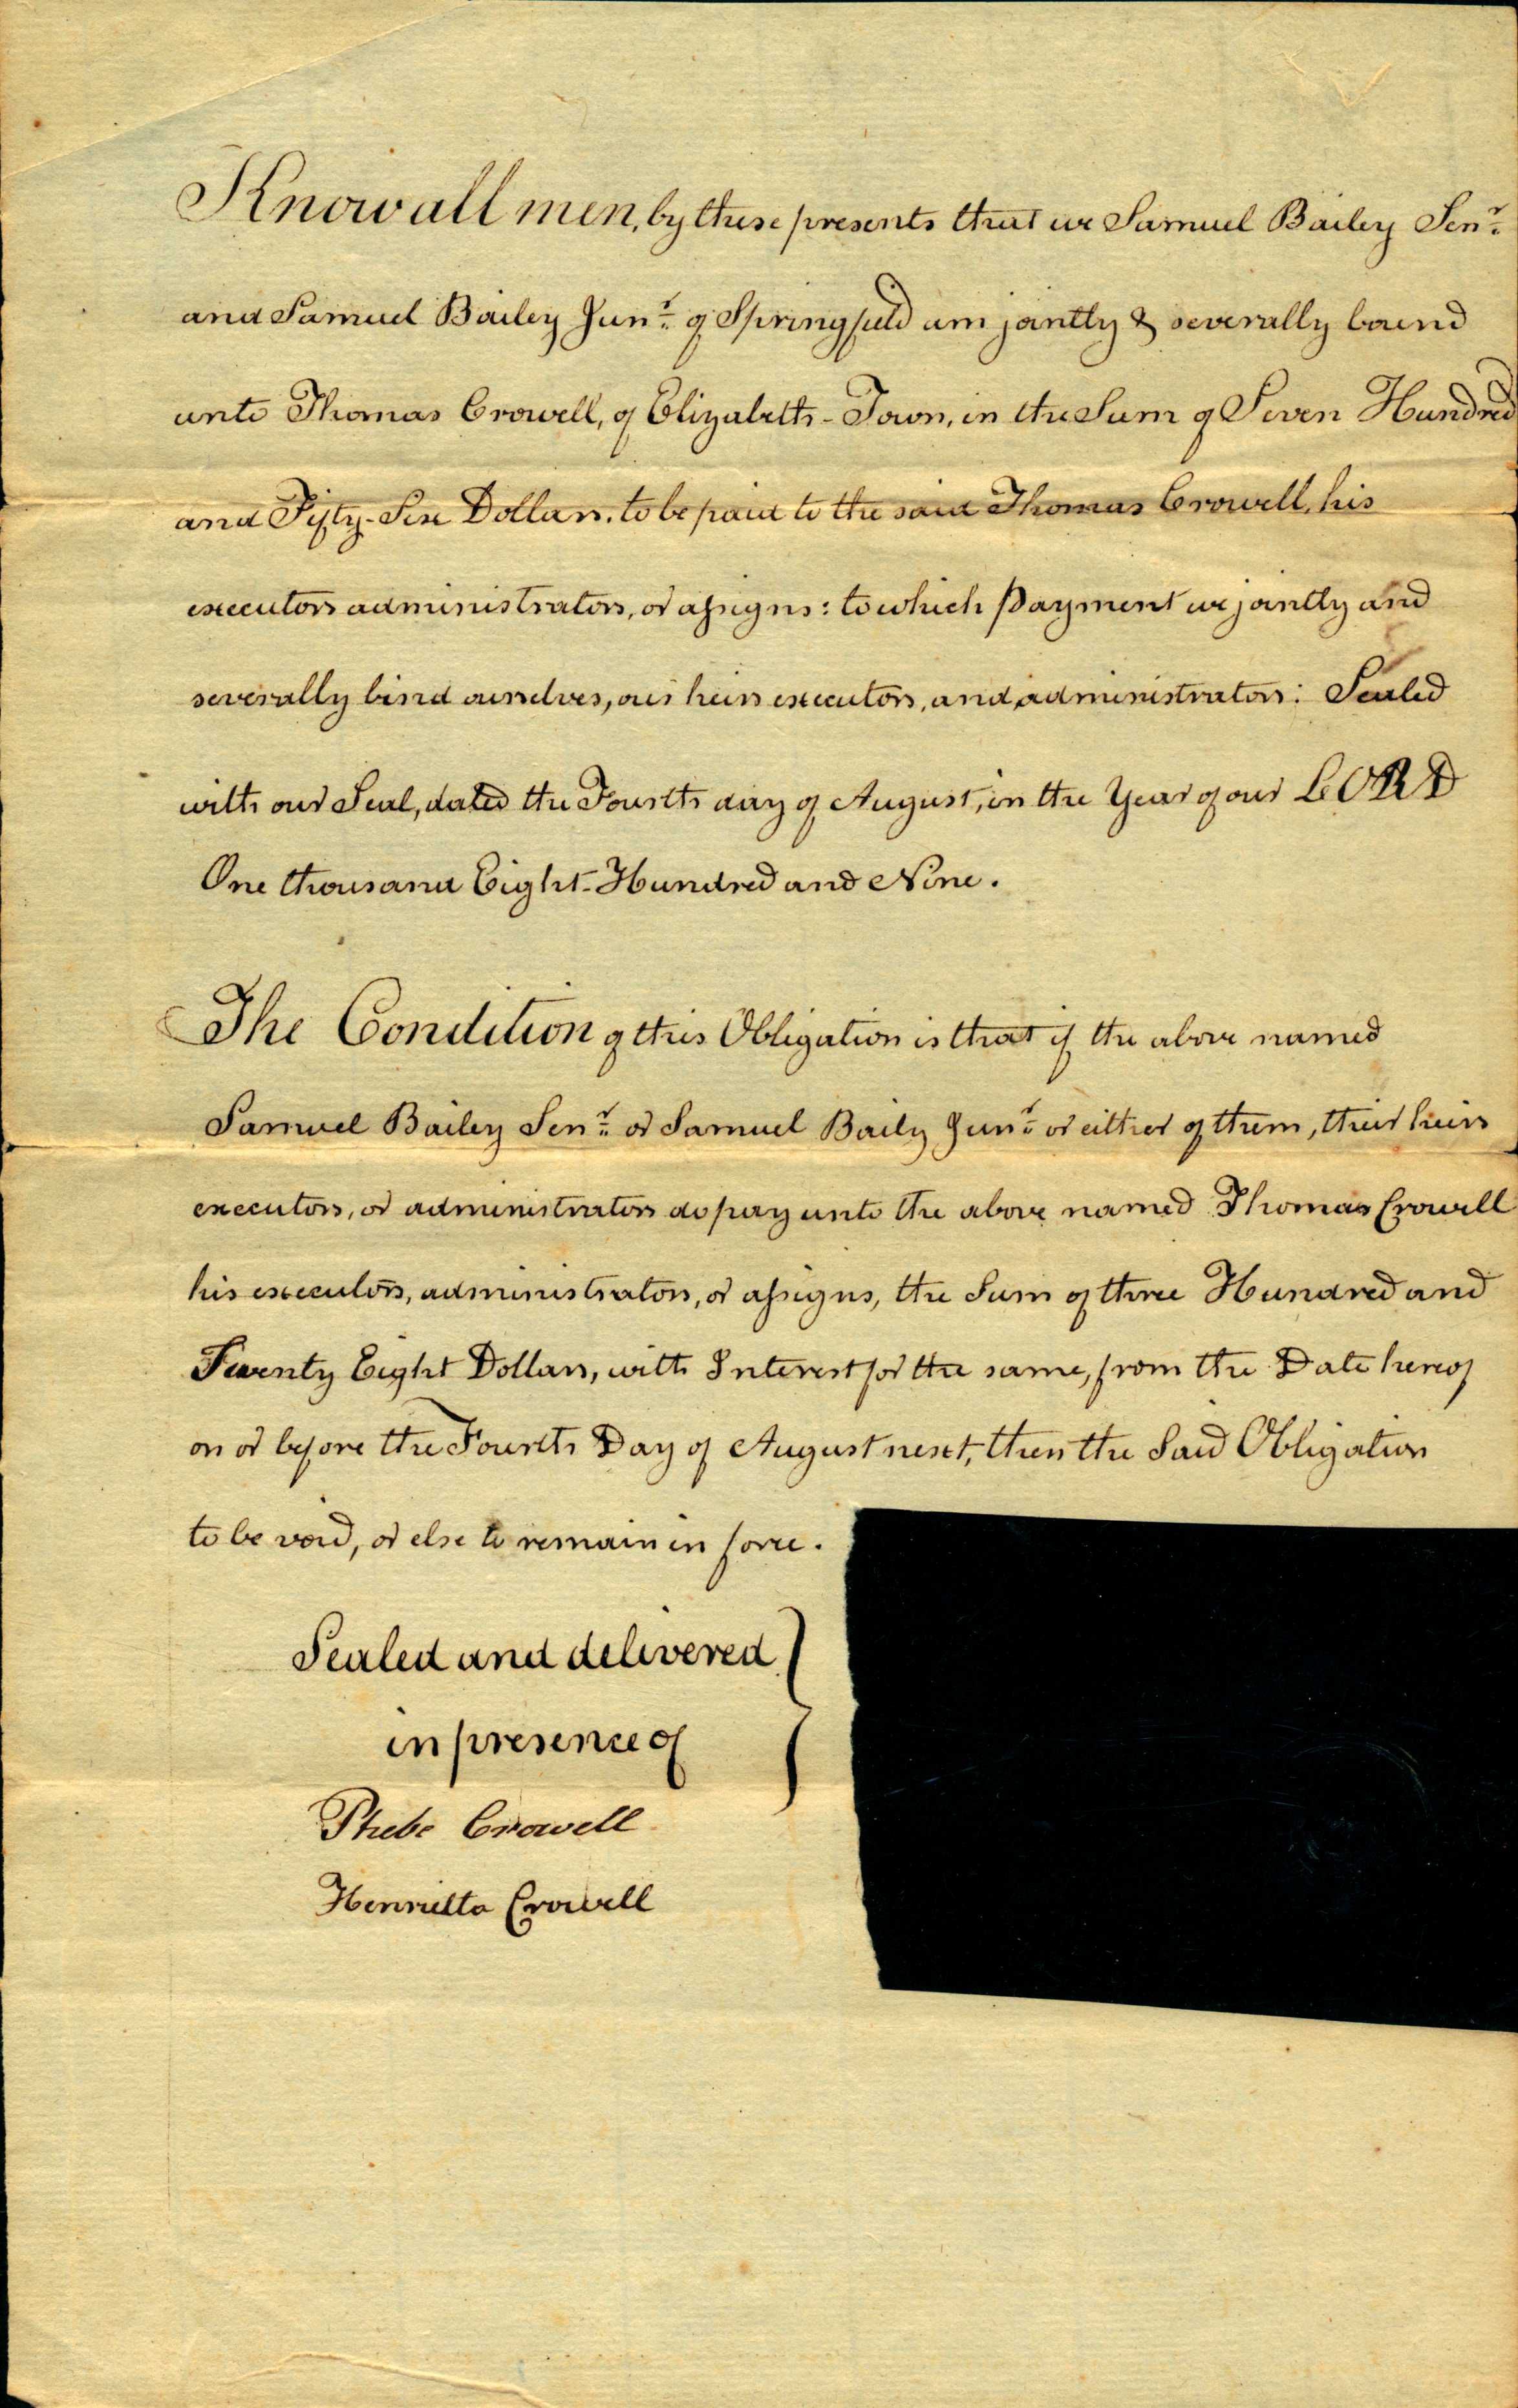 Know all men, by these presents that we Samuel Bailey Senr.
and Samuel Bailey Junr. of Springfield am jointly & severally bound
unto Thomas Crowell, of Elizabeth-Town, in the Sum of Seven Hundred
and Fifty-Six Dollars. to be paid to the said Thomas Crowell, his
executors administrators, or assigns: to which Payment we jointly and
severally bind ourselves, our heirs executors, and administrators: Sealed
with our Seal, dated the Fourth day of August, in the Year of our LORD
One thousand Eight-Hundred and Nine.
The Condition of this Obligation is that if the above named
Samuel Bailey Senr. or Samuel Baily Junr. or either of them, their heirs
executors, or administrators do pay unto the above named Thomas Crowell
his executors, administrators, or assigns, the Sum of three Hundred and
Seventy Eight Dollars, with Interest for the same, from the Date hereof
on or before the Fourth Day of August next, then the Said Obligation
to be void, or else to remain in force.
Sealed and delivered
in presence of
Phebe Crowell
Henrietta Crowell